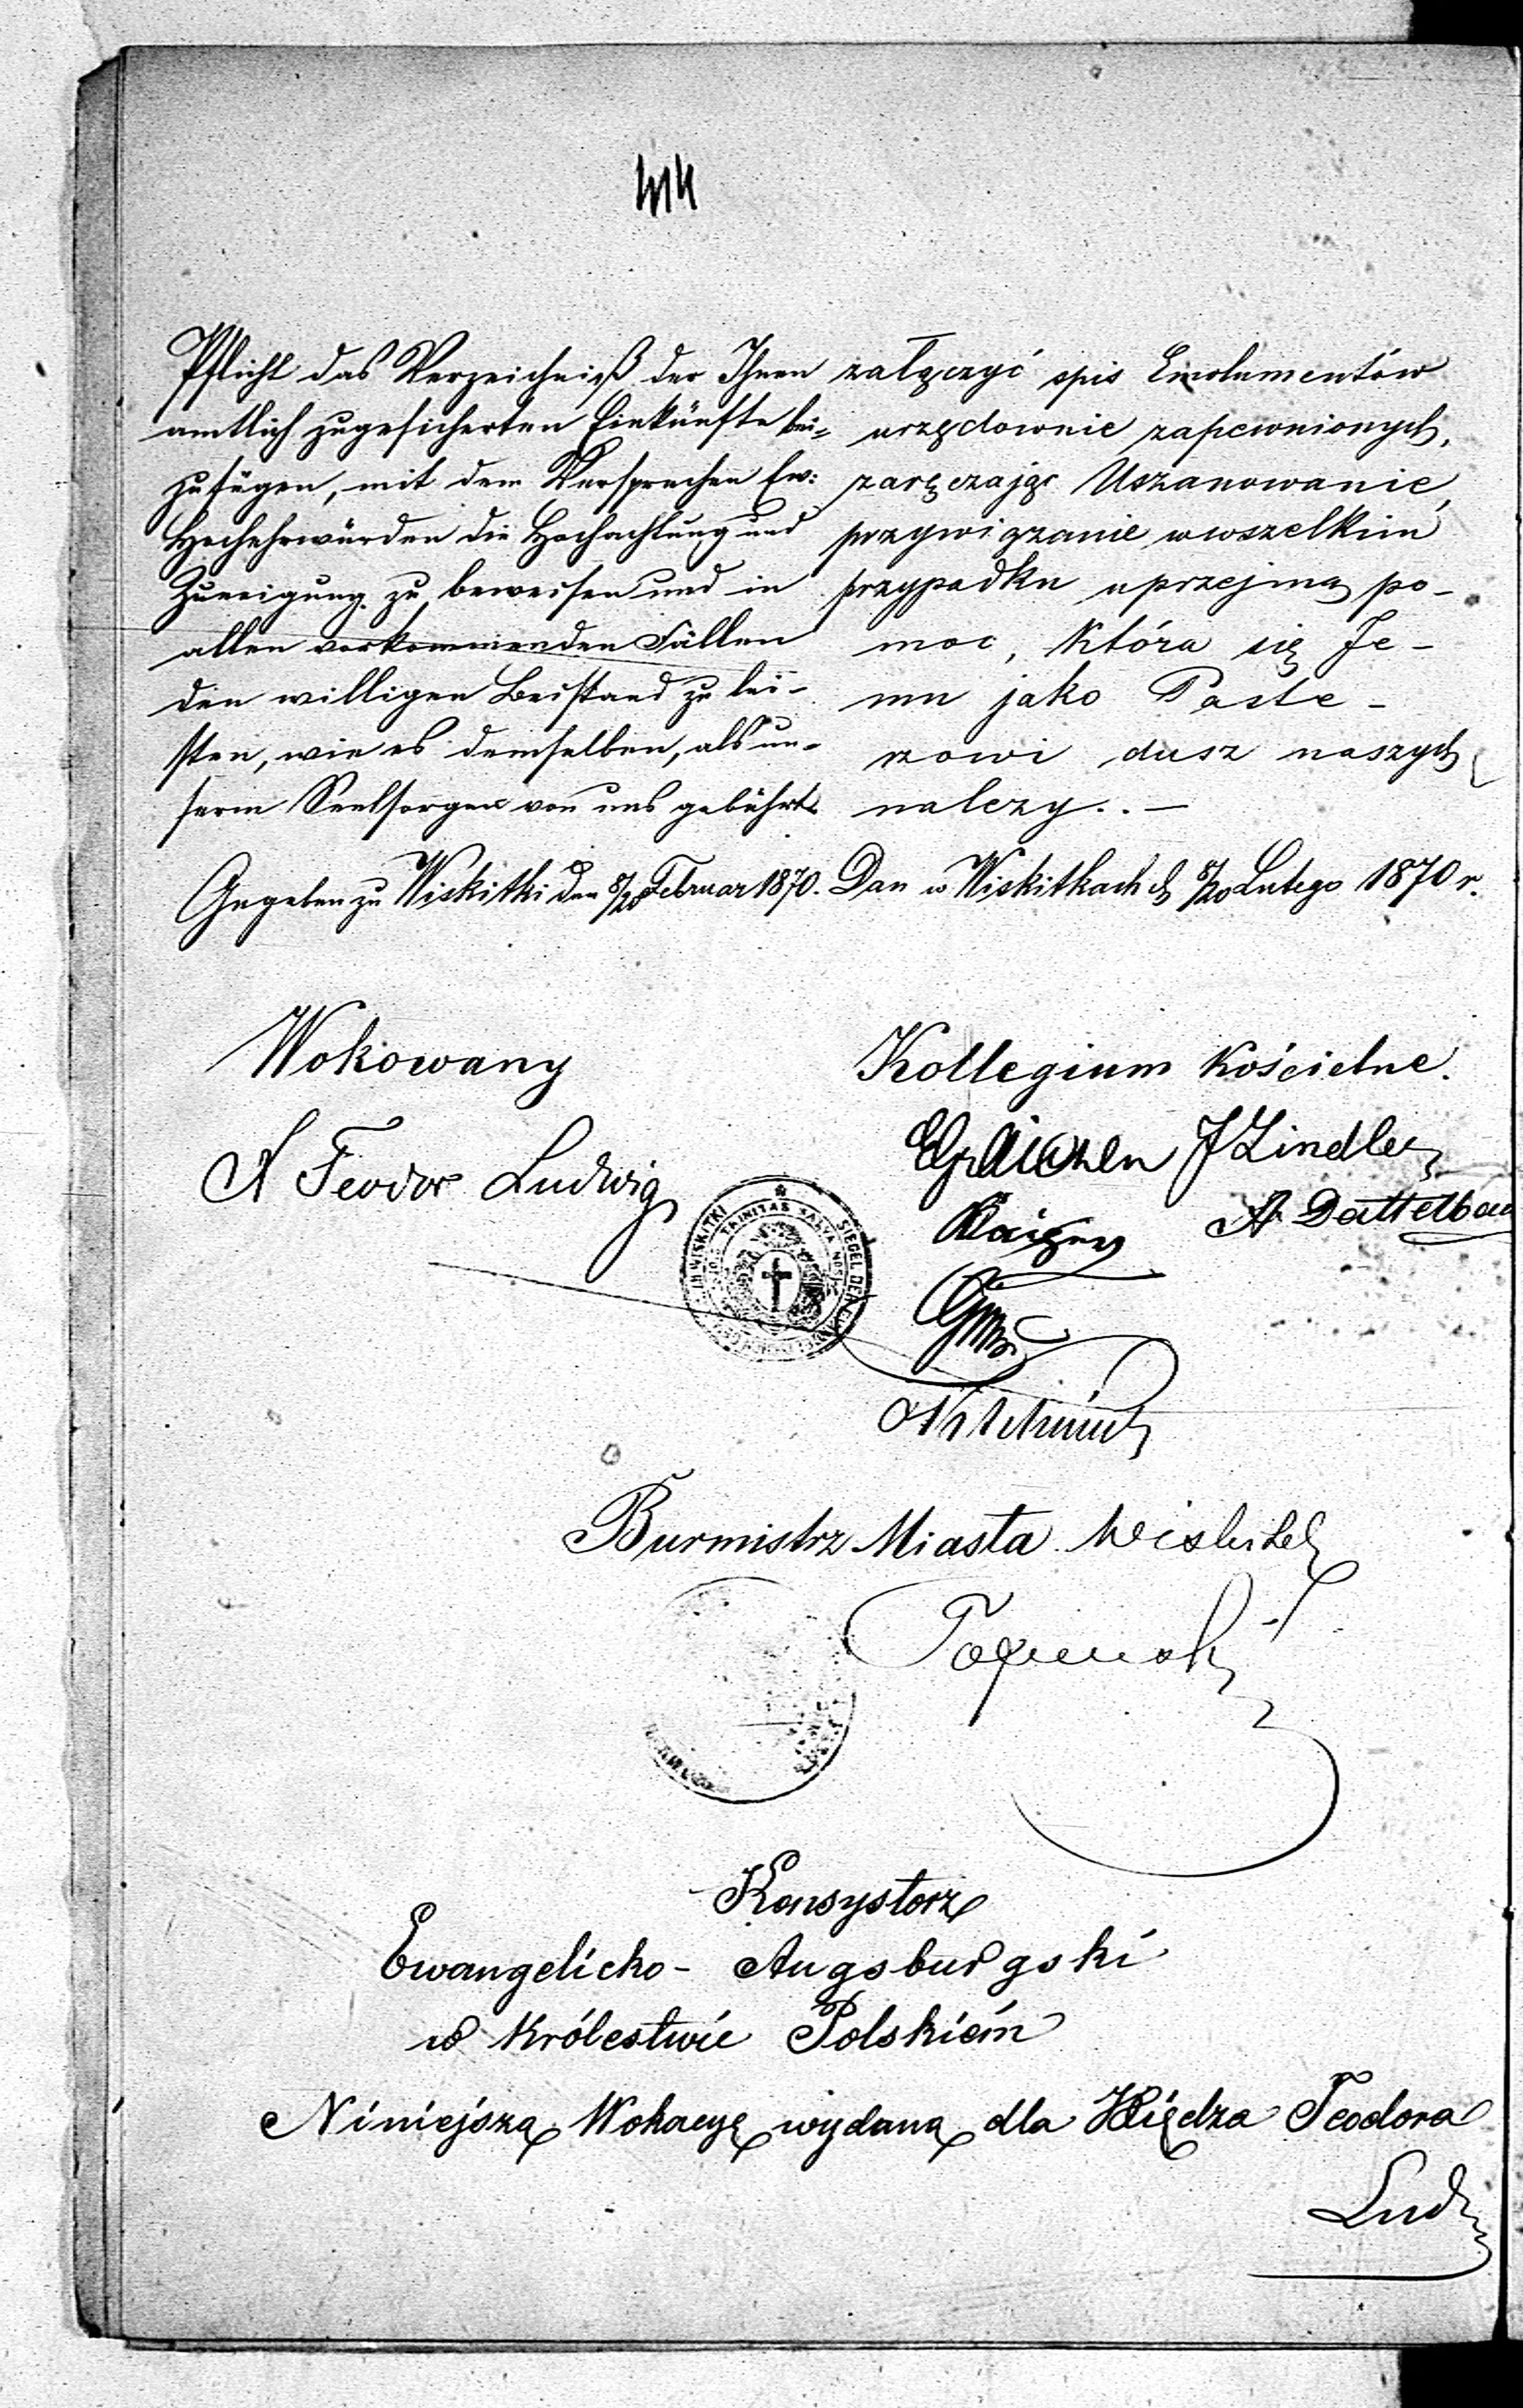 414
Pflicht das Verzeichniß der Ihnen
amtlich zugesicherten Einkünfte bei=
zufügen, mit dem Versprechen Ew:
Hochehrwürden die Hochachtung und
Zuneigung zu beweisen und in
allen vorkommenden Fällen
den willigen Beistand zu lei-
sten, wie es demselben, als un-
serm Seelsorger von uns gebührt.
Gegeben zu Wiskitki den 8/20 Februar 1870.
załączyć spis Emolumentów
urzędownie zapewnionych,
zaręczając Uszanowanie,
przywiązanie w wszelkim
przypadku uprzejmą po-
moc, która się Je-
mu jako Paste-
rzowi dusz naszych
należy. . —
Dan w Wiskitkach d. 8/20 Lutego 1870 r.
Wokowany
A Teodor Ludwig
Kollegium Kościelne.
J Lindler
A Dattelbau
SIEGEL DER
IN WISKITKI
TRINITAS SALVA
Burmistrz Miasta Wiskitek
Konsystorz
Ewangelicko- Augsburgski
w Królestwie Polskiém
Niniejszą Wokacyę wydaną dla Księdza Teodora
Lud